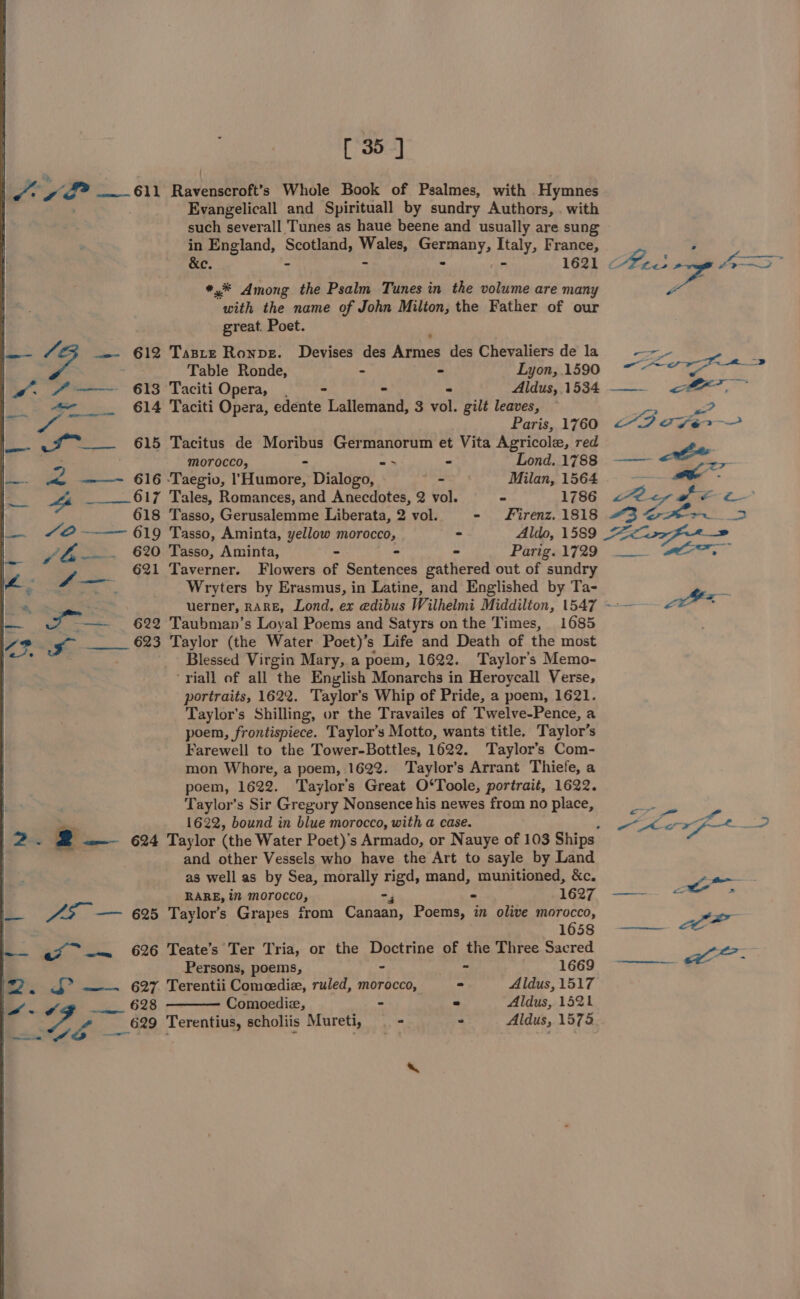 [ 35 ]
611 Ravenscroft's Whole Book of Psalmes, with Hymnes
Evangelicall and Spirituall by sundry Authors, with
such severall Tunes as haue beene and usually are sung
in England, Scotland, Wales, Germany, Italy, France,
&c. - - - - 1621
*⁎* Among the Psalm Tunes in the volume are many
with the name of John Milton, the Father of our
great Poet.
612 TABLE RONDE. Devises des Armes des Chevaliers de la
Table Ronde, - - Lyon, 1590
613 Taciti Opera, - - - Aldus, 1534
614 Taciti Opera, edente Lallemand, 3 vol. gilt leaves,
Paris, 1760
615 Tacitus de Moribus Germanorum et Vita Agricolæ, red
morocco, - - - Lond. 1788
616 Taegio, l'Humore, Dialogo, - Milan, 1564
617 Tales, Romances, and Anecdotes, 2 vol. - 1786
618 Tasso, Gerusalemme Liberata, 2 vol. - Firenz. 1818
619 Tasso, Aminta, yellow morocco, - Aldo, 1589
620 Tasso, Aminta, - - - Parig. 1729
621 Taverner. Flowers of Sentences gathered out of sundry
Wryters by Erasmus, in Latine, and Englished by Ta-
uerner, RARE, Lond. ex ædibus Wilhelmi Middilton, 1547
622 Taubman's Loyal Poems and Satyrs on the Times, 1685
623 Taylor (the Water Poet)'s Life and Death of the most
Blessed Virgin Mary, a poem, 1622. Taylor's Memo-
riall of all the English Monarchs in Heroycall Verse,
portraits, 1622. Taylor's Whip of Pride, a poem, 1621.
Taylor's Shilling, or the Travailes of Twelve-Pence, a
poem, frontispiece. Taylor's Motto, wants title. Taylor's
Farewell to the Tower-Bottles, 1622. Taylor's Com-
mon Whore, a poem, 1622. Taylor's Arrant Thiefe, a
poem, 1622. Taylor's Great O'Toole, portrait, 1622.
Taylor's Sir Gregory Nonsence his newes from no place,
1622, bound in blue morocco, with a case.
624 Taylor (the Water Poet)'s Armado, or Nauye of 103 Ships
and other Vessels who have the Art to sayle by Land
as well as by Sea, morally rigd, mand, munitioned, &c.
RARE, in morocco, - - 1627
625 Taylor's Grapes from Canaan, Poems, in olive morocco,
1658
626 Teate's Ter Tria, or the Doctrine of the Three Sacred
Persons, poems, - - 1669
627 Terentii Comœdiæ, ruled, morocco, - Aldus, 1517
628 ——— Comoediæ, - - Aldus, 1521
629 Terentius, scholiis Mureti, - - Aldus, 1575